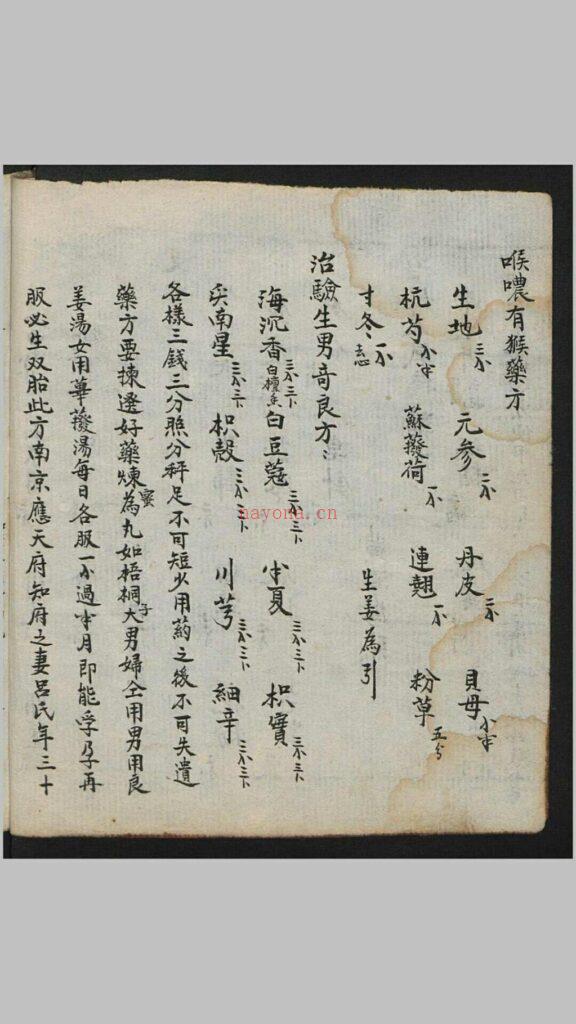 喉噥有猴藥方
生地三小 元参二小 丹皮二小 貝母小半
杭芍小半 蘇蕟荷一小 連翹一小 粉草五分
寸冬一小去心 生姜為引
治驗生男奇良方：
海沉香三小三卜白檀香 白豆蔻三小三卜 半夏三小三卜 枳實三小三卜
尖南星三小三卜 枳殼三小三卜 川芎三小三卜 細辛三小三卜
各樣三錢三分照分秤足不可短少用药之後不可失遺
藥方要揀選好藥煉蜜為丸如梧桐子大男婦仝用男用良
姜湯女用蓽蕟湯每日各服一小過半月即能孚孕再
服必生双胎此方南京應天府知府之妻呂氏年三十
nayona.cn